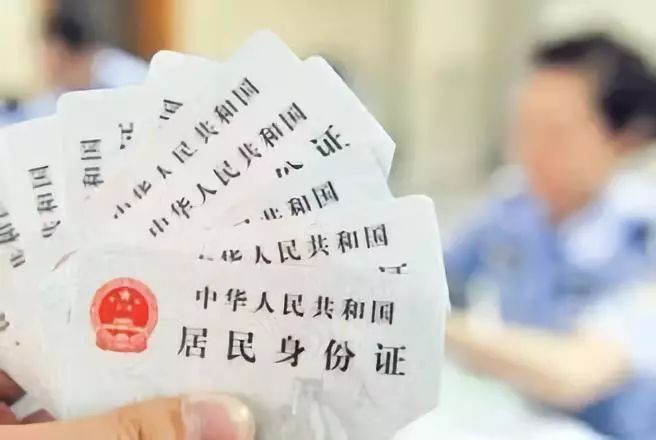 和国
和国
中华人民共和国
中华人民共和国
证
和国
中华人民共和国
中华人民共和国
居民身份证